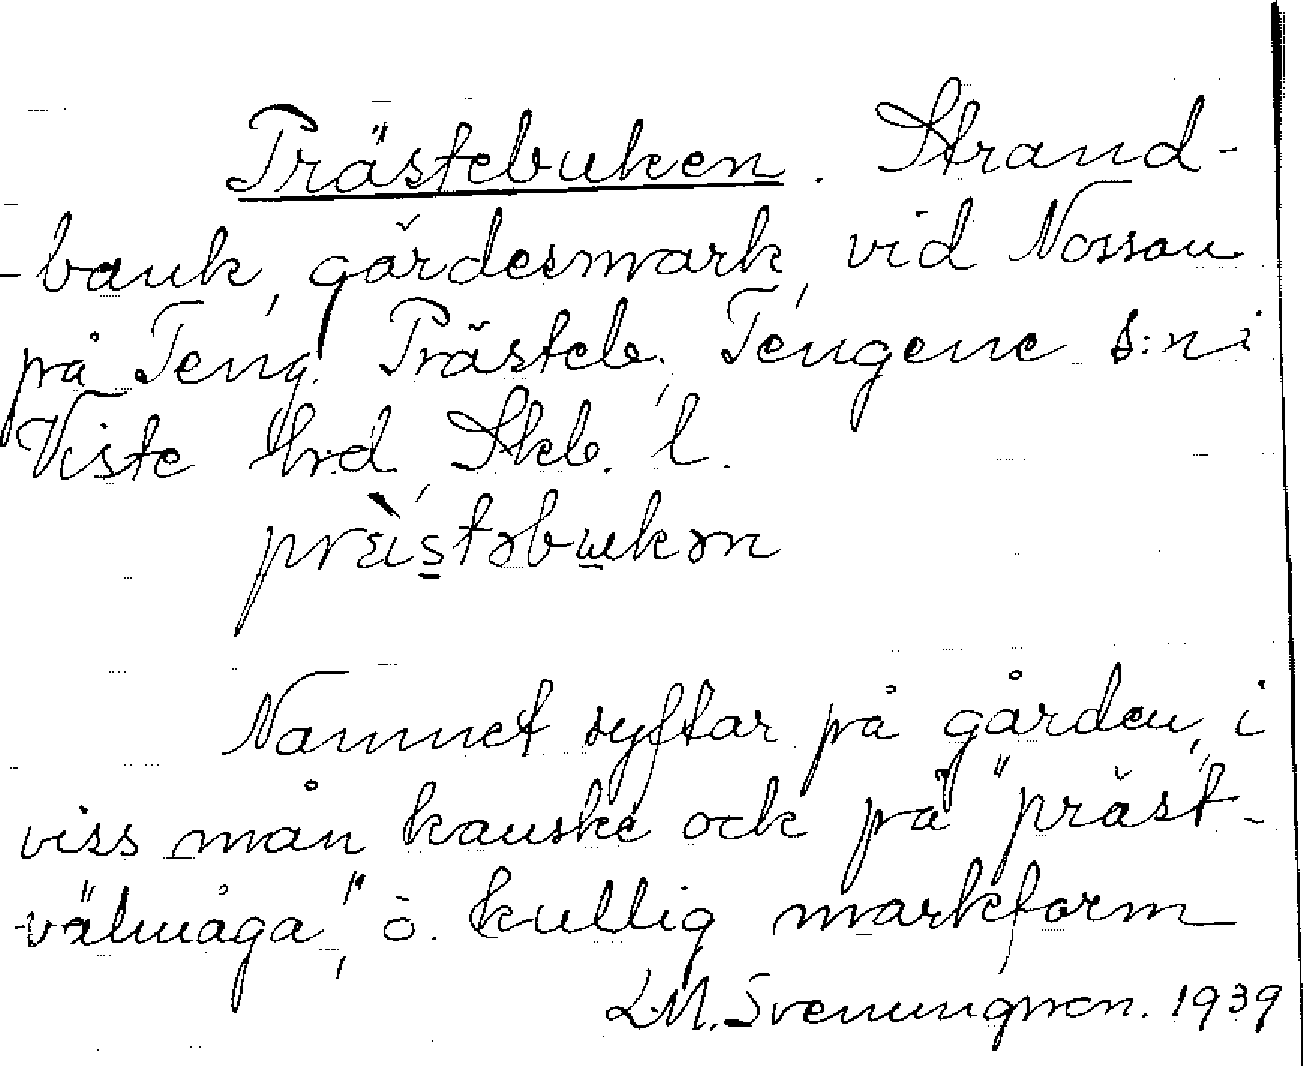 Prästebuken. Strand-
-bank, gärdesmark, vid Nossan
på Teng. Prästeb., Tengene s:n i
Viste hrd, Skb. l.
præ̀istəbukən
Namnet syftar på gården, i
viss mån kanske ock på "präst-
-välmåga", o. kullig markform
L.M. Svenungsson. 1939